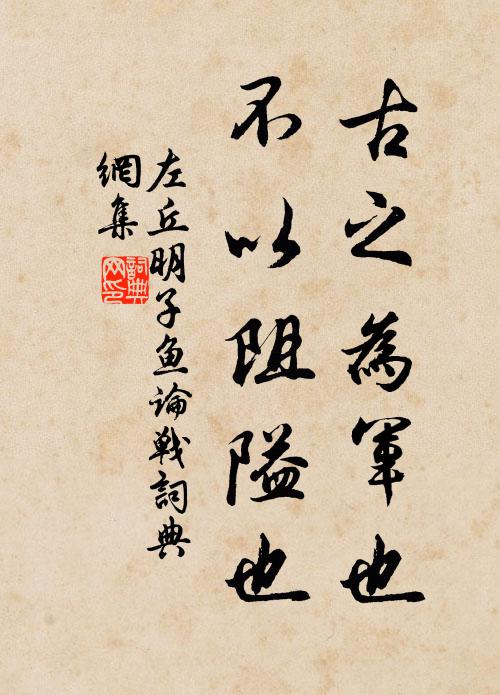 古之為軍也
不以阻隘也
左丘明子魚論戰詞典
網集
詞典
网印